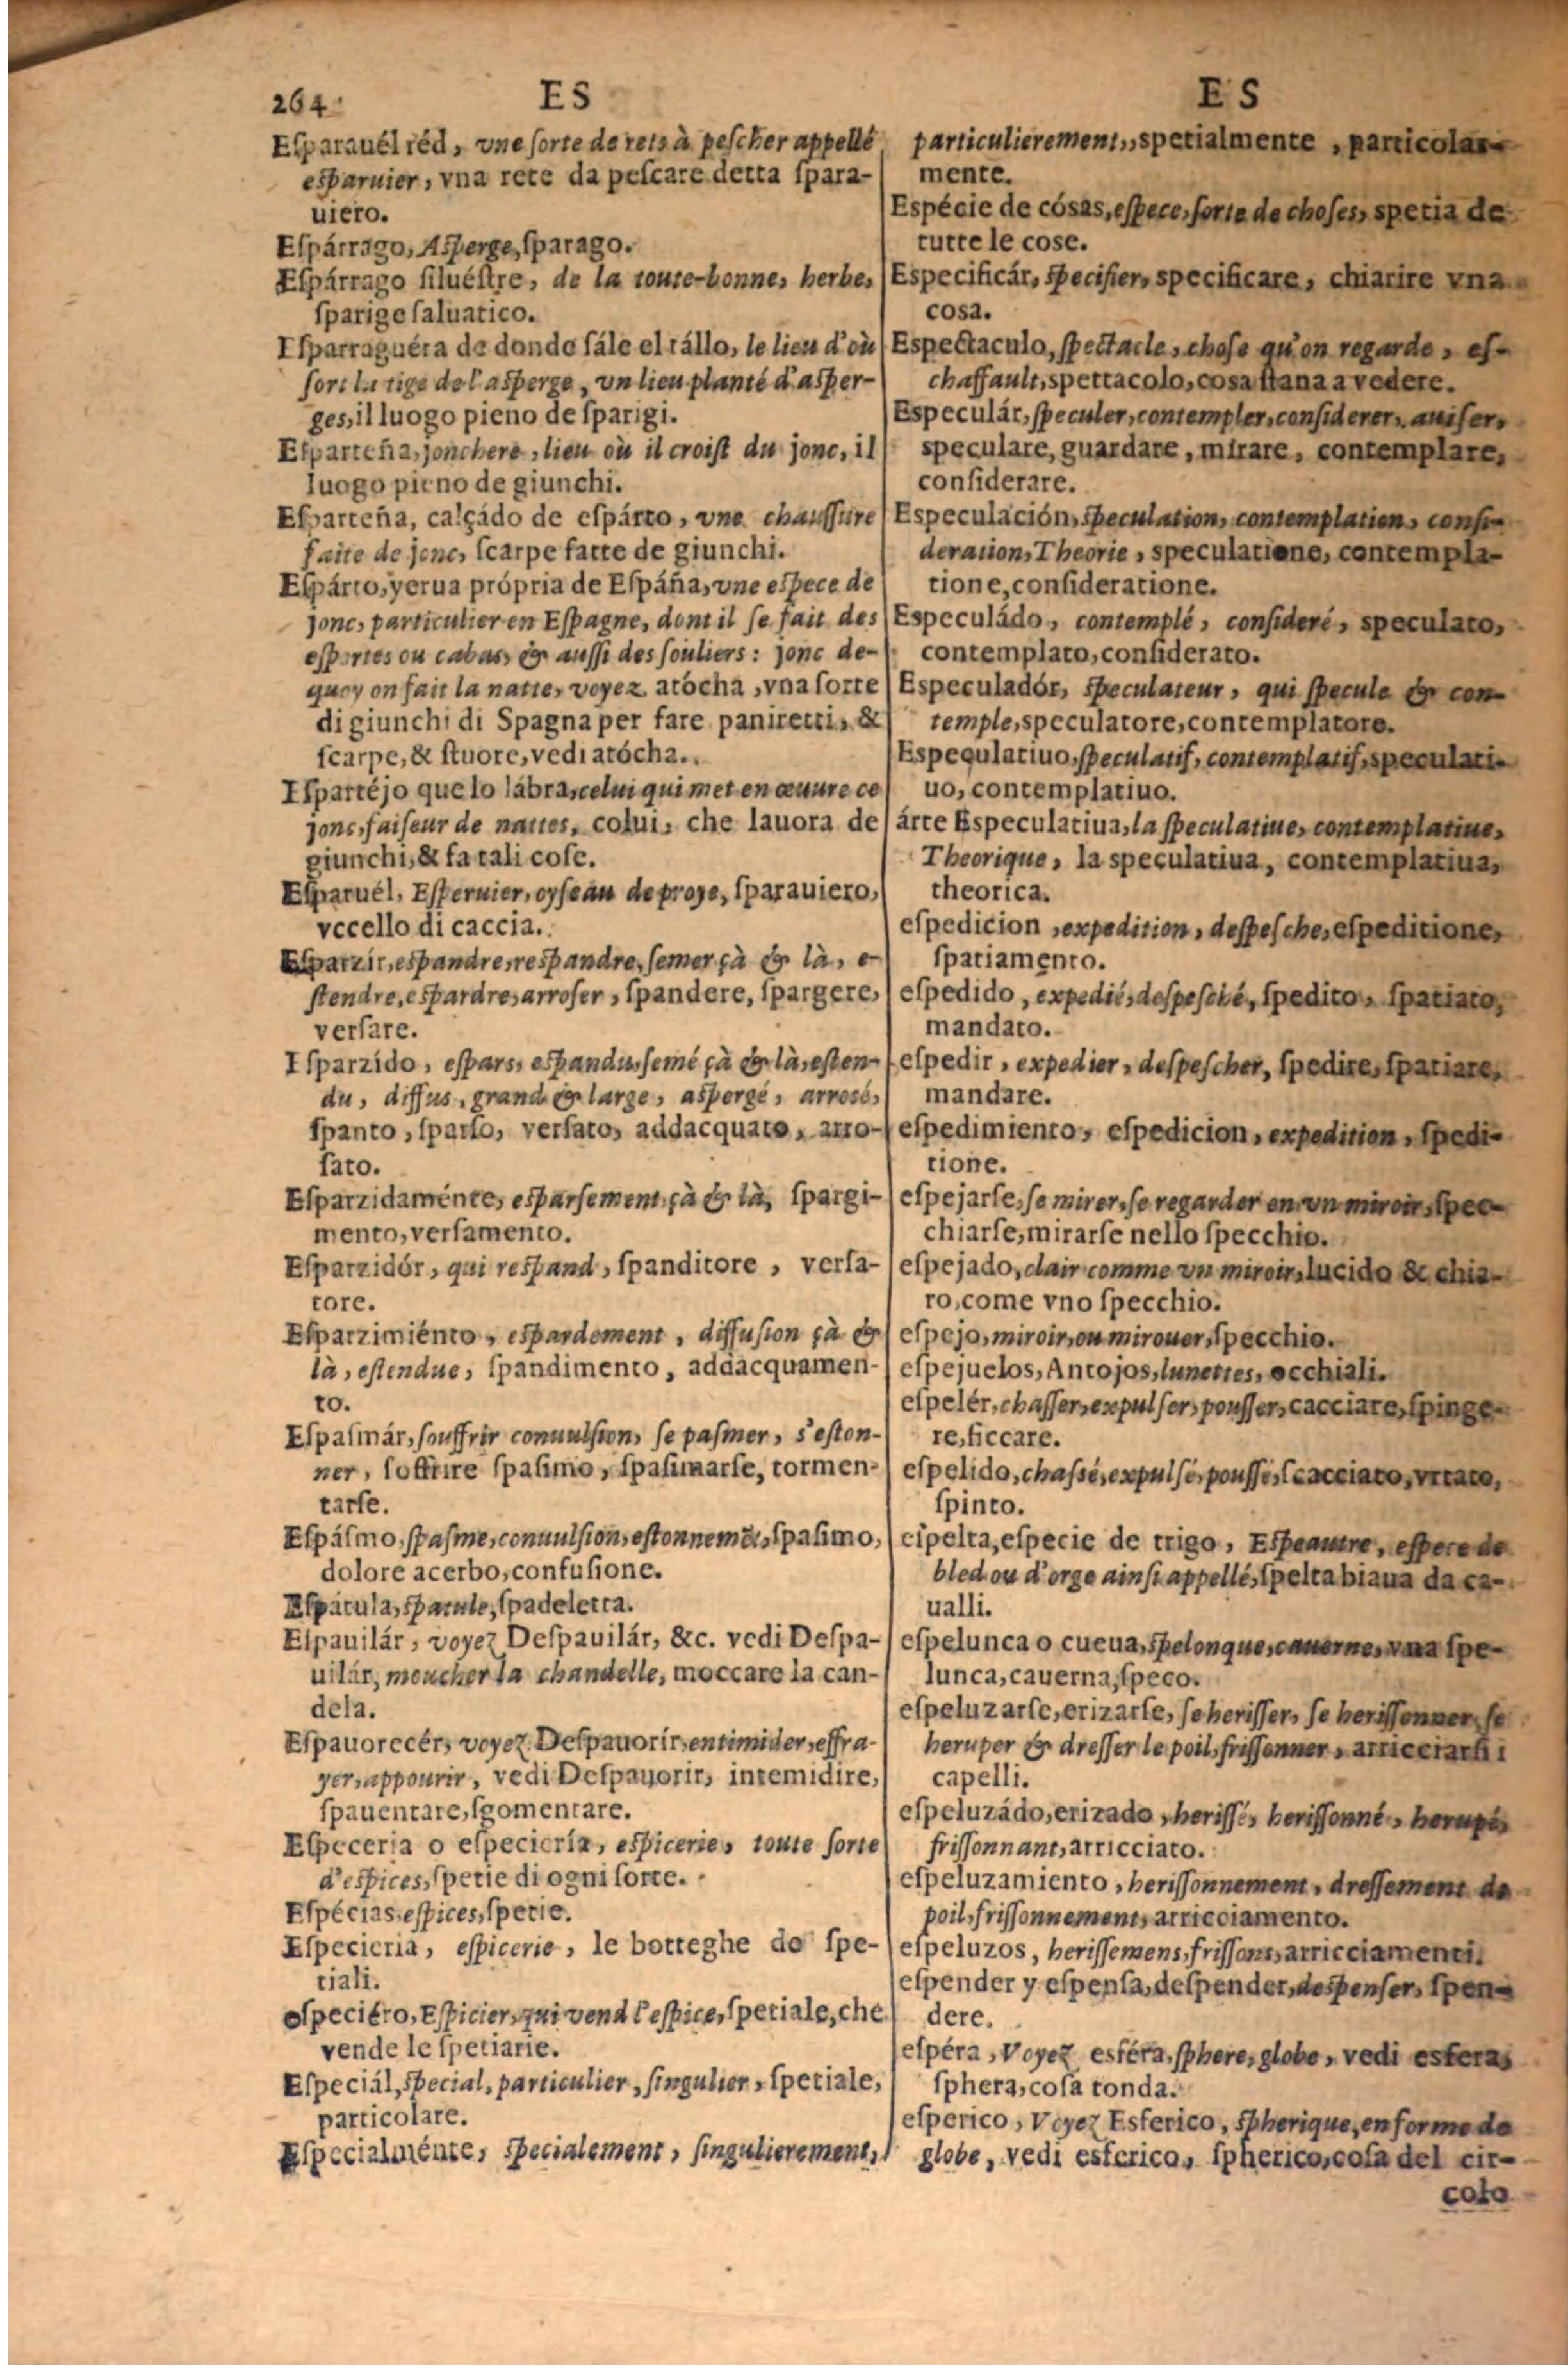 264
ES
Eſparauél réd, vne ſorte de rets à peſcher appellé
eſparuier, vna rete da peſcare detta ſpara-
uiero.
Eſpárrago, Aſperge, ſparago.
Eſpárrago ſiluéſtre, de la toute-bonne, herbe,
ſparige ſaluatico.
Eſparraguéra de donde ſále el tállo, le lieu d'où
ſort la tige de l'aſperge, vn lieu planté d'aſper-
ges, il luogo pieno de ſparigi.
Eſparteña, jonchere, lieu où il croiſt du jonc, il
luogo pieno de giunchi.
Eſparteña, calçádo de eſpárto, vne chauſſure
faite de jonc, ſcarpe fatte de giunchi.
Eſpárto, yerua própria de Eſpáña, vne eſpece de
jonc, particulier en Eſpagne, dont il ſe fait des
eſportes ou cabas, & auſſi des ſouliers: jonc de-
quoy on fait la natte, voyez atócha, vna ſorte
di giunchi di Spagna per fare paniretti, &
ſcarpe, & ſtuore, vedi atócha.
Eſpartéjo que lo lábra, celui qui met en œuure ce
jonc, faiſeur de nattes, colui, che lauora de
giunchi, & fa tali coſe.
Eſparuél, Eſperuier, oyſeau de proye, ſparauiero,
vccello di caccia.
Eſparzir, eſpandre, reſpandre, ſemer çà & là, e-
ſtendre, eſpardre, arroſer, ſpandere, ſpargere,
verſare.
Eſparzido, eſpars, eſpandu, ſemé çà & là, eſten-
du, diffus, grand & large, aſpergé, arrosé,
ſpanto, ſparſo, verſato, addacquato, arro-
ſato.
Eſparzidaménte, eſparſement çà & là, ſpargi-
mento, verſamento.
Eſparzidór, qui reſpand, ſpanditore, verſa-
tore.
Eſparzimiénto, eſpardement, diffuſion çà &
là, eſtendue, ſpandimento, addacquamen-
to.
Eſpaſmár, ſouffrir conuulſion, ſe paſmer, s'eſton-
ner, ſoffrire ſpaſimo, ſpaſimarſe, tormen-
tarſe.
Eſpáſmo, ſpaſme, conuulſion, eſtonnemẽt, ſpaſimo,
dolore acerbo, confuſione.
Eſpátula, ſpatule, ſpadeletta.
Eſpauilár, voyez Deſpauilár, &c. vedi Deſpa-
uilár, moucher la chandelle, moccare la can-
dela.
Eſpauorecér, voyez Deſpauorír, entimider, effra-
yer, appourir, vedi Deſpauorir, intemidire,
ſpauentare, ſgomentare.
Eſpeceria o eſpeciería, eſpicerie, toute ſorte
d'eſpices, ſpetie di ogni ſorte.
Eſpécias, eſpices, ſpetie.
Eſpecieria, eſpicerie, le botteghe de ſpe-
tiali.
eſpeciéro, Eſpicier, qui vend l'eſpice, ſpetiale, che
vende le ſpetiarie.
Eſpeciál, ſpecial, particulier, ſingulier, ſpetiale,
particolare.
Eſpecialménte, ſpecialement, ſingulierement,
ES
particulierement,, spetialmente, particolar-
mente.
Espécie de cósas, eſpece, ſorte de choſes, spetia de
tutte le cose.
Especificár, ſpecifier, specificare, chiarire vna
cosa.
Espectaculo, ſpectacle, choſe qu'on regarde, eſ-
chaffault, spettacolo, cosa ſtana a vedere.
Especulár, ſpeculer, contempler, conſiderer, auiſer,
speculare, guardare, mirare, contemplare,
conſiderare.
Especulación, ſpeculation, contemplation, conſi-
deration, Theorie, speculatione, contempla-
tione, conſideratione.
Especuládo, contemplé, conſideré, speculato,
contemplato, conſiderato.
Especuladór, ſpeculateur, qui ſpecule & con-
temple, speculatore, contemplatore.
Especulatiuo, ſpeculatif, contemplatif, speculati-
uo, contemplatiuo.
árte Especulatiua, la ſpeculatiue, contemplatiue,
Theorique, la speculatiua, contemplatiua,
theorica.
eſpedicion, expedition, deſpeſche, eſpeditione,
ſpatiamento.
eſpedido, expedié, deſpeſché, ſpedito, ſpatiato,
mandato.
eſpedir, expedier, deſpeſcher, ſpedire, ſpatiare,
mandare.
eſpedimiento, eſpedicion, expedition, ſpedi-
tione.
eſpejarſe, ſe mirer, ſe regarder en vn miroir, ſpec-
chiarſe, mirarſe nello ſpecchio.
eſpejado, clair comme vn miroir, lucido & chia-
ro, come vno ſpecchio.
eſpejo, miroir, ou mirouer, ſpecchio.
eſpejuelos, Antojos, lunettes, occhiali.
eſpelér, chaſſer, expulſer, pouſſer, cacciare, ſpinge-
re, ficcare.
eſpelido, chaſſé, expulſé, pouſſé, ſcacciato, vrtato,
ſpinto.
eſpelta, eſpecie de trigo, Eſpeautre, eſpece de
bled ou d'orge ainſi appellé, ſpelta biaua da ca-
ualli.
eſpelunca o cueua, ſpelonque, cauerne, vna ſpe-
lunca, cauerna, ſpeco.
eſpeluzarſe, erizarſe, ſe heriſſer, ſe heriſſonner, ſe
heruper & dreſſer le poil, friſſonner, arricciarſi i
capelli.
eſpeluzádo, erizado, heriſſé, heriſſonné, herupé,
friſſonnant, arricciato.
eſpeluzamiento, heriſſonnement, dreſſement de
poil, friſſonnement, arricciamento.
eſpeluzos, heriſſemens, friſſons, arricciamenti.
eſpender y eſpenſa, deſpender, deſpenſer, ſpen-
dere.
eſpéra, Voyez esféra, ſphere, globe, vedi esfera,
ſphera, coſa tonda.
eſperico, Voyez Esferico, ſpherique, en forme de
globe, vedi esferico, ſpherico, coſa del cir-
colo